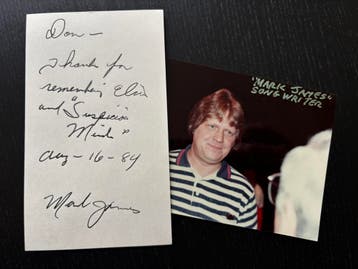 Don —
Thanks for
remembering Elvis
and "Suspicion
Minds"
Aug - 16 - 84
Mark James
"MARK JAMES"
SONG WRITER